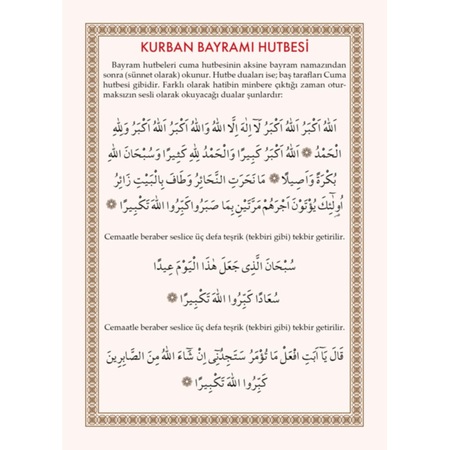 KURBAN BAYRAMI HUTBESİ
Bayram hutbeleri cuma hutbesinin aksine bayram namazından
sonra (sünnet olarak) okunur. Hutbe duaları ise; baş tarafları Cuma
hutbesi gibidir. Farklı olarak hatibin minbere çıktığı zaman otur-
maksızın sesli olarak okuyacağı dualar şunlardır:
اَللهُ اَكْبَرُ اَللهُ اَكْبَرُ لَآ اِلٰهَ اِلَّا اللهُ وَاللهُ اَكْبَرُ اَللهُ اَكْبَرُ وَلِلّٰهِ
الْحَمْدُ ۞ اَللهُ اَكْبَرُ كَبِيرًا وَالْحَمْدُ لِلّٰهِ كَثِيرًا وَسُبْحَانَ اللهِ
بُكْرَةً وَاَصِيلًا ۞ مَا نَحَرَتِ النَّحَائِرُ وَطَافَ بِالْبَيْتِ زَائِرُ
اُولٰٓئِكَ يُؤْتَوْنَ اَجْرَهُمْ مَرَّتَيْنِ بِمَا صَبَرُوا كَبِّرُوا اللهَ تَكْبِيرًا ۞
Cemaatle beraber seslice üç defa teşrik (tekbiri gibi) tekbir getirilir.
سُبْحَانَ الَّذِى جَعَلَ هٰذَا الْيَوْمَ عِيدًا
سُعَادًا كَبِّرُوا اللهَ تَكْبِيرًا ۞
Cemaatle beraber seslice üç defa teşrik (tekbiri gibi) tekbir getirilir.
قَالَ يَآ اَبَتِ افْعَلْ مَا تُؤْمَرُ سَتَجِدُنِٓى اِنْ شَآءَ اللهُ مِنَ الصَّابِرِينَ
كَبِّرُوا اللهَ تَكْبِيرًا ۞